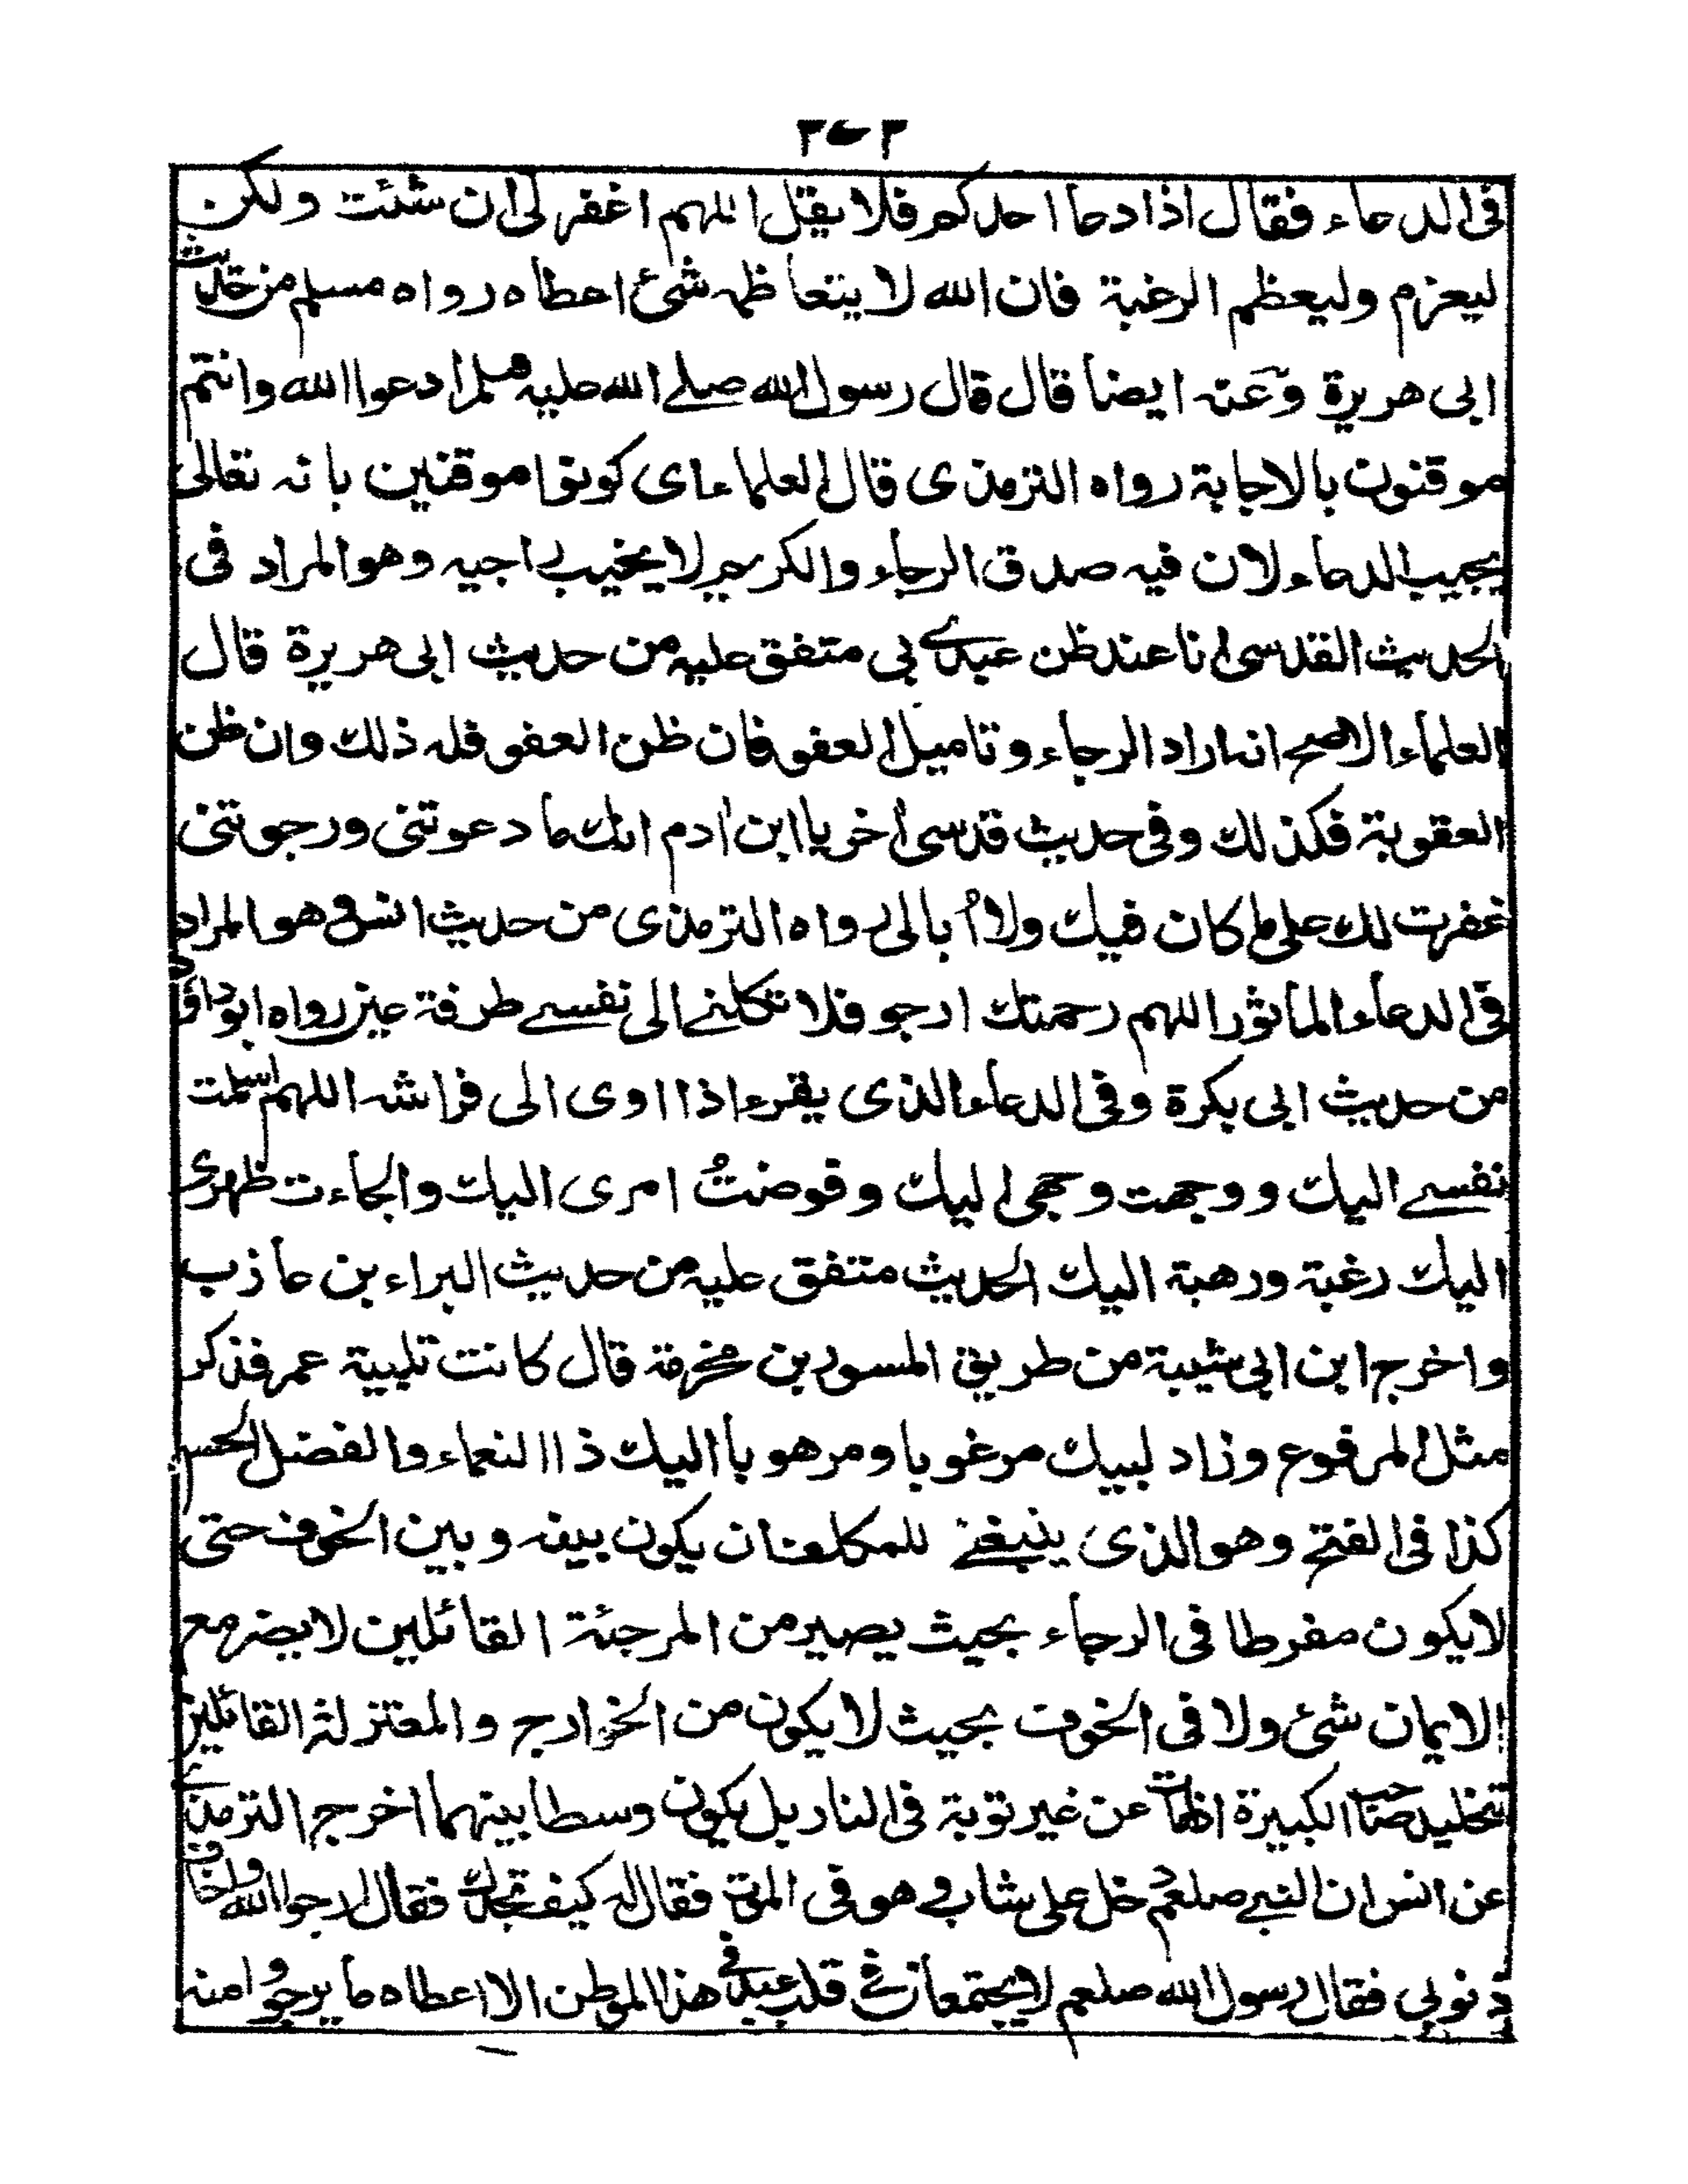 فی الدعاء فقال اذا دعا احدكم فلا يقل اللهم اغفر لی ان شئت ولكن
ليعزم وليعظم الرغبة فان الله لا يتعاظمہ شئ اعطاه رواه مسلم من حديث
ابی هريرة وعنہ ايضا قال قال رسول الله صلے الله عليہ وسلم ادعوا الله وانتم
موقنون بالاجابة رواه الترمذی قال العلماء ای كونوا موقنين بانہ تعالی
يجيب الدعاء لان فيہ صدق الرجاء والكريم لا يخيب راجيہ وهو المراد فی
الحديث القدسی انا عند ظن عبدے بی متفق عليہ من حديث ابی هريرة قال
العلماء الاصح انہ اراد الرجاء وتاميل العفو فان ظن العفو فلہ ذلك وان ظن
العقوبة فكذلك وفی حديث قدسی اخر يا ابن ادم انك ما دعوتنی ورجوتنی
غفرت لك علی ما كان فيك ولا ابالی رواه الترمذی من حديث انس وهو المراد
فی الدعاء الماثور اللهم رحمتك ارجو فلا تكلنے الی نفسے طرفة عين رواه ابو داؤد
من حديث ابی بكرة وفی الدعاء الذی يقرء اذا اوی الی فراشہ اللهم اسلمت
نفسے اليك ووجهت وجهی اليك وفوضتُ امری اليك والجاءت ظهری
اليك رغبة ورهبة اليك الحديث متفق عليہ من حديث البراء بن عاذب
واخرج ابن ابی شيبة من طريق المسور بن مخرمة قال كانت تلبية عمر فذكر
مثل المرفوع وزاد لبيك مرغوبا ومرهوبا اليك ذا النعماء والفضل الحسن
كذا فی الفتح وهو الذی ينبغے للمكلف ان يكون بينہ وبين الخوف حتی
لا يكون مفرطا فی الرجاء بحيث يصير من المرجئة القائلين لا يضر مع
الايمان شئ ولا فی الخوف بحيث لا يكون من الخوارج والمعتزلة القائلين
بتخليد صاحب الكبيرة اذا مات عن غير توبة فی النار بل يكون وسطا بينهما اخرج الترمذی
عن انس ان النبے صلعم دخل علی شاب وهو فی الموت فقال لہ كيف تجدك فقال ارجوا الله واخاف
ذنوبی فقال رسول الله صلعم لا يجتمعان فی قلب عبد فی هذا الموطن الا اعطاه ما يرجو وامنہ